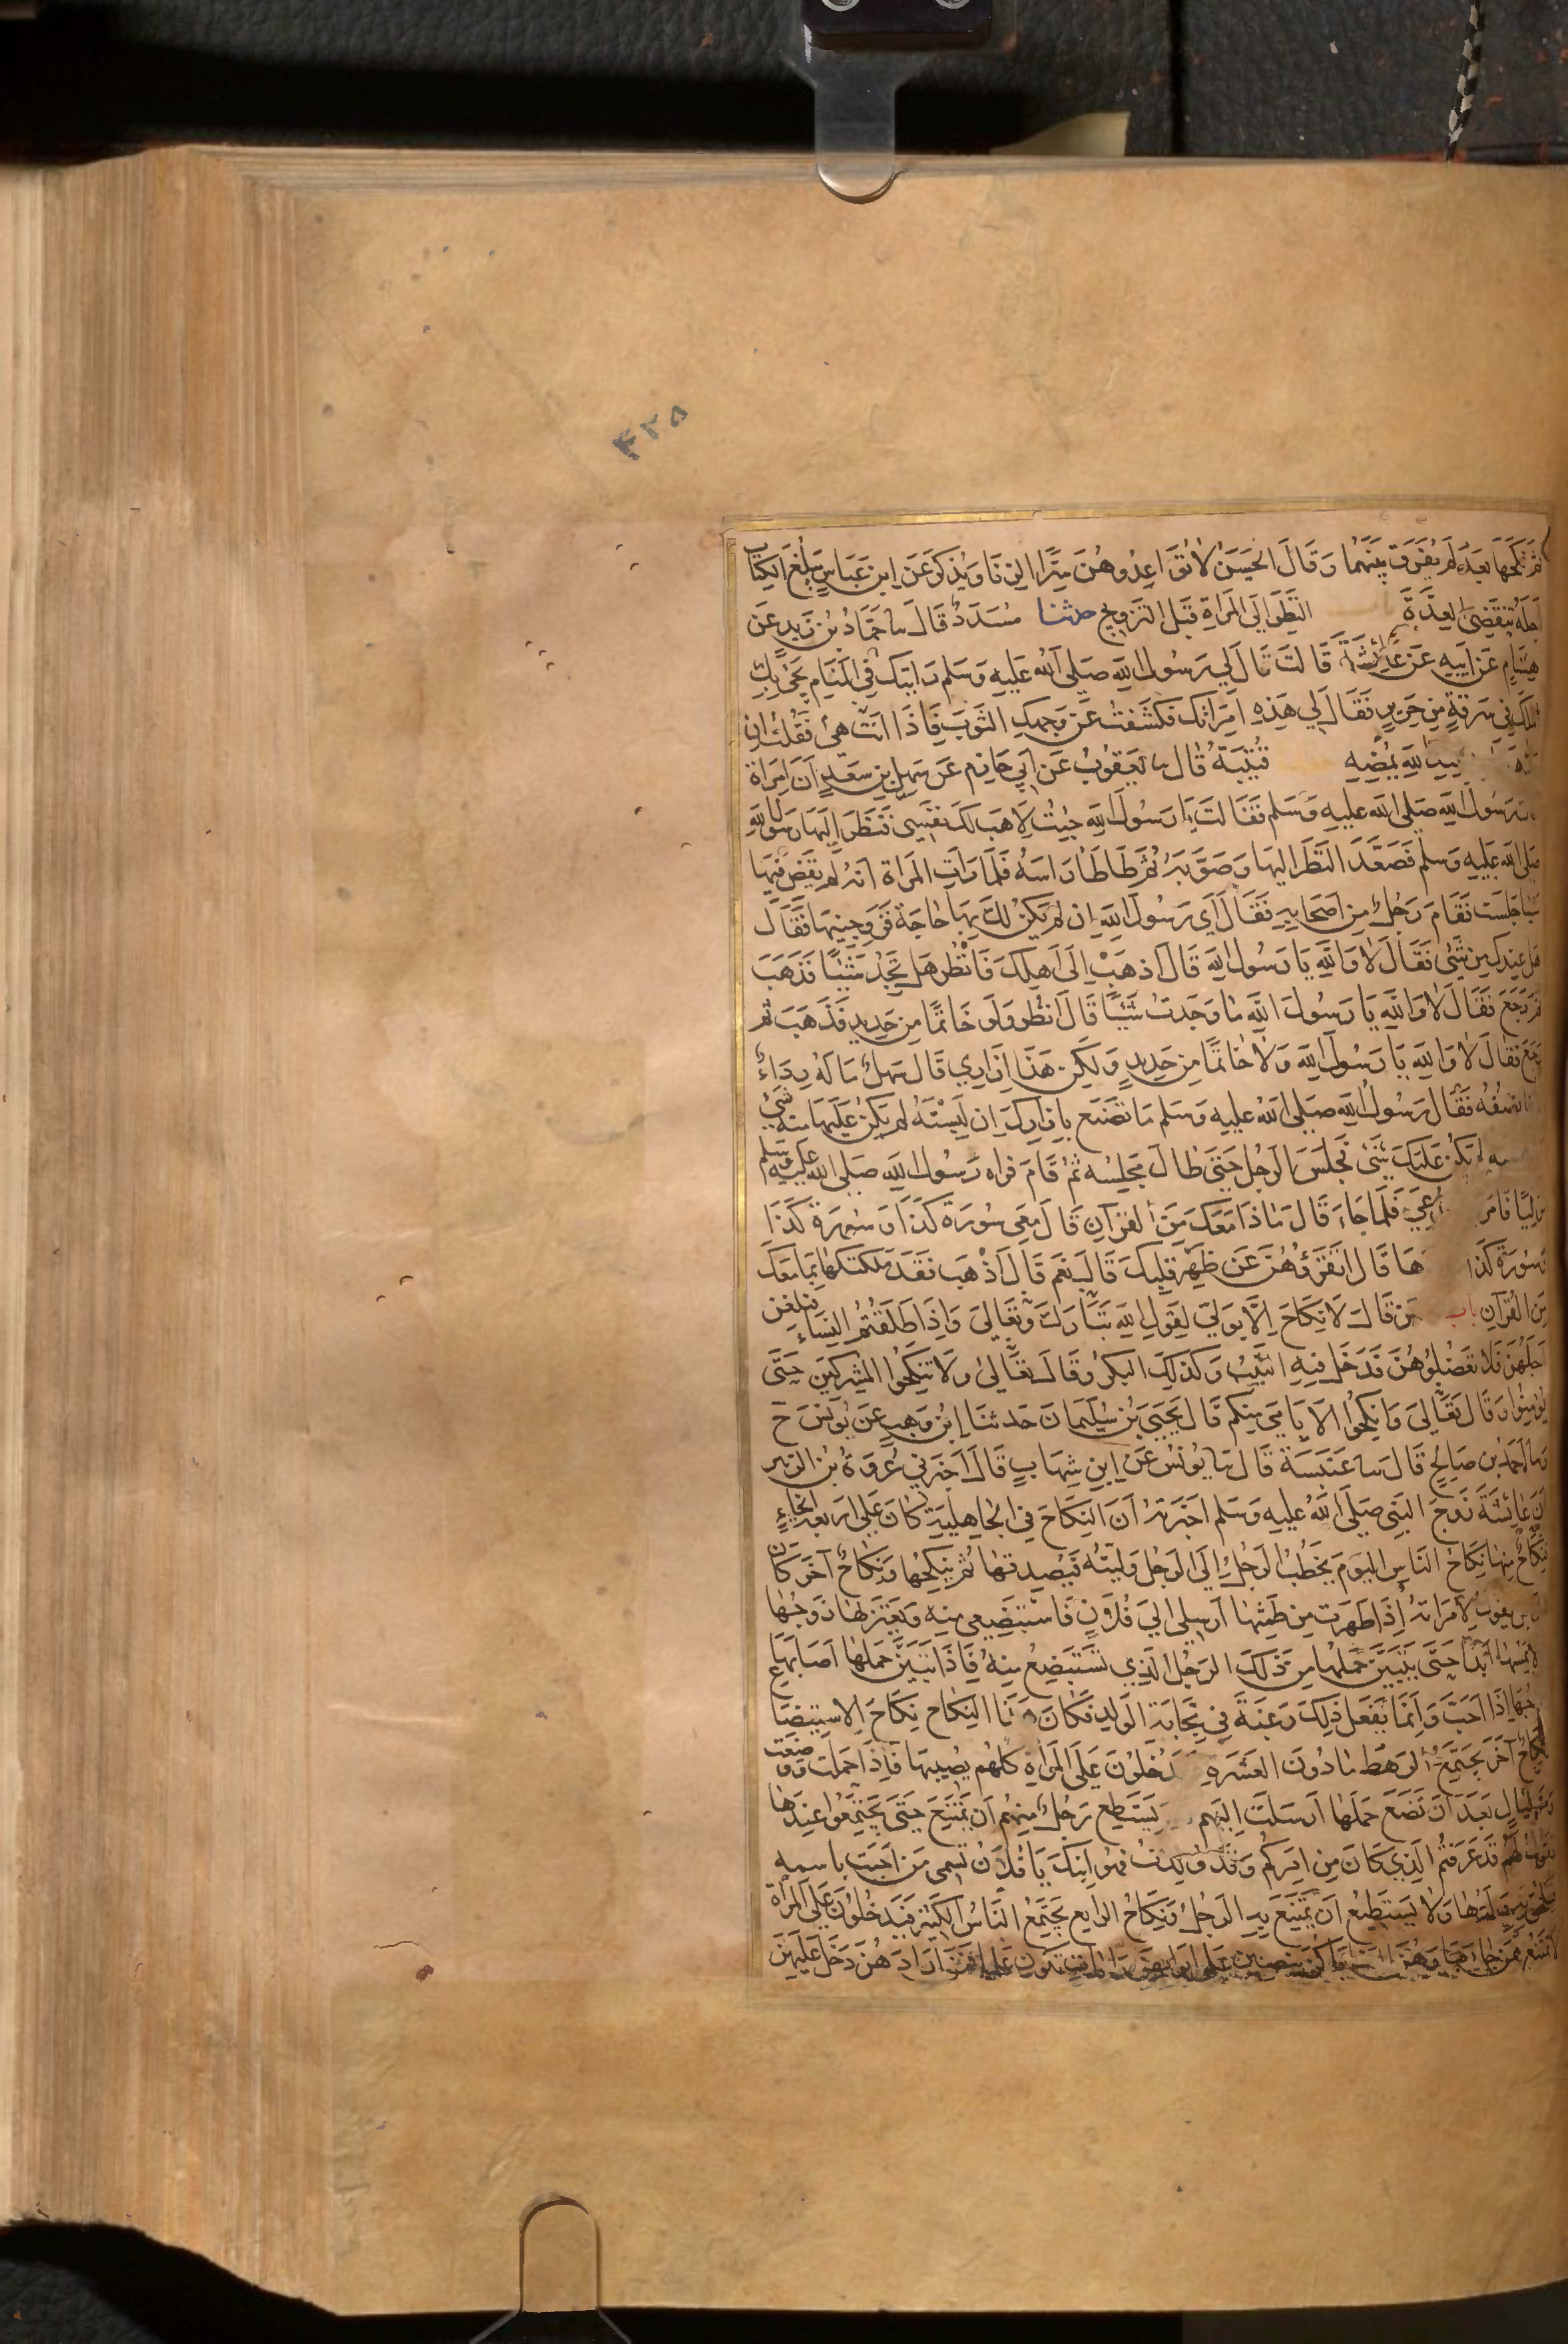 ۴۲۵
ثم نكحها بعد لم يفرق بينهما وقال الحسن لا تواعدوهن سرا الزنا ويذكر عن ابن عباس يبلغ الكتاب
اجله تنقضي العدة باب النظر الى المراة قبل التزويج حدثنا مسدد قال سا حماد بن زيد عن
هشام عن ابيه عن عائشة قالت قال لي رسول الله صلى الله عليه وسلم رايتك في المنام يجئ بك
الملك في سرقة من حرير فقال لي هذه امراتك فكشفت عن وجهك الثوب فاذا انت هي فقلت ان
الله يمضه قتيبة قال سا يعقوب عن ابي حازم عن سهل بن سعد ان امراة
رسول الله صلى الله عليه وسلم فقالت يا رسول الله جئت لاهب لك نفسي فنظر اليها رسول الله
صلى الله عليه وسلم فصعد النظر اليها وصوبه ثم طاطا راسه فلما رات المراة انه لم يقض فيها
شيا جلست فقام رجل من اصحابه فقال اي رسول الله ان لم يكن لك بها حاجة فزوجنيها فقال
هل عندك من شئ فقال لا والله يا رسول الله قال اذهب الى اهلك فانظر هل تجد شيئا فذهب
ثم رجع فقال لا والله يا رسول الله ما وجدت شيئا قال انظر ولو خاتما من حديد فذهب ثم
رجع فقال لا والله يا رسول الله ولا خاتما من حديد ولكن هذا ازاري قال سهل ما له رداء
نصفه فقال رسول الله صلى الله عليه وسلم ما تصنع بازارك ان لبسته لم يكن عليها منه شئ
لم يكن عليك شئ فجلس الرجل حتى طال مجلسه ثم قام فراه رسول الله صلى الله عليه وسلم
موليا فامر فدعي فلما جاء قال ماذا معك من القران قال معي سورة كذا وسورة كذا
وسورة كذا ها قال اتقرؤهن عن ظهر قلبك قال نعم قال اذهب فقد ملكتكها بما معك
من القران باب من قال لا نكاح الا بولي لقول الله تبارك وتعالى واذا طلقتم النساء فبلغن
اجلهن فلا تعضلوهن فدخل فيه الثيب وكذلك البكر وقال تعالى ولا تنكحوا المشركين حتى
يؤمنوا وقال تعالى وانكحوا الايامى منكم قال يحيى بن سليمان حدثنا ابن وهب عن يونس ح
وسا احمد بن صالح قال سا عنبسة قال سا يونس عن ابن شهاب قال اخبرني عروة بن الزبير
ان عائشة زوج النبي صلى الله عليه وسلم اخبرته ان النكاح في الجاهلية كان على اربعة انحاء
فنكاح منها نكاح الناس اليوم يخطب الرجل الى الرجل وليته فيصدقها ثم ينكحها ونكاح آخر كان
الرجل يقول لامراته اذا طهرت من طمثها ارسلي الى فلان فاستبضعي منه ويعتزلها زوجها
لا يمسها ابدا حتى يتبين حملها من ذلك الرجل الذي تستبضع منه فاذا تبين حملها اصابها
زوجها اذا احب وانما يفعل ذلك رغبة في نجابة الولد فكان هذا النكاح نكاح الاستبضاع
ونكاح آخر يجتمع الرهط ما دون العشرة يدخلون على المراة كلهم يصيبها فاذا حملت ووضعت
ومر ليال بعد ان تضع حملها ارسلت اليهم يستطيع رجل منهم ان يمتنع حتى يجتمعوا عندها
تقول لهم قد عرفتم الذي كان من امركم وقد ولدت فهو ابنك يا فلان تسمي من احبت باسمه
فيلحق به ولدها ولا يستطيع ان يمتنع به الرجل ونكاح الرابع يجتمع الناس الكثير فيدخلون على المراة
لا تمتنع ممن جاءها وهن البغايا كن ينصبن على ابوابهن رايات تكون علما فمن ارادهن دخل عليهن